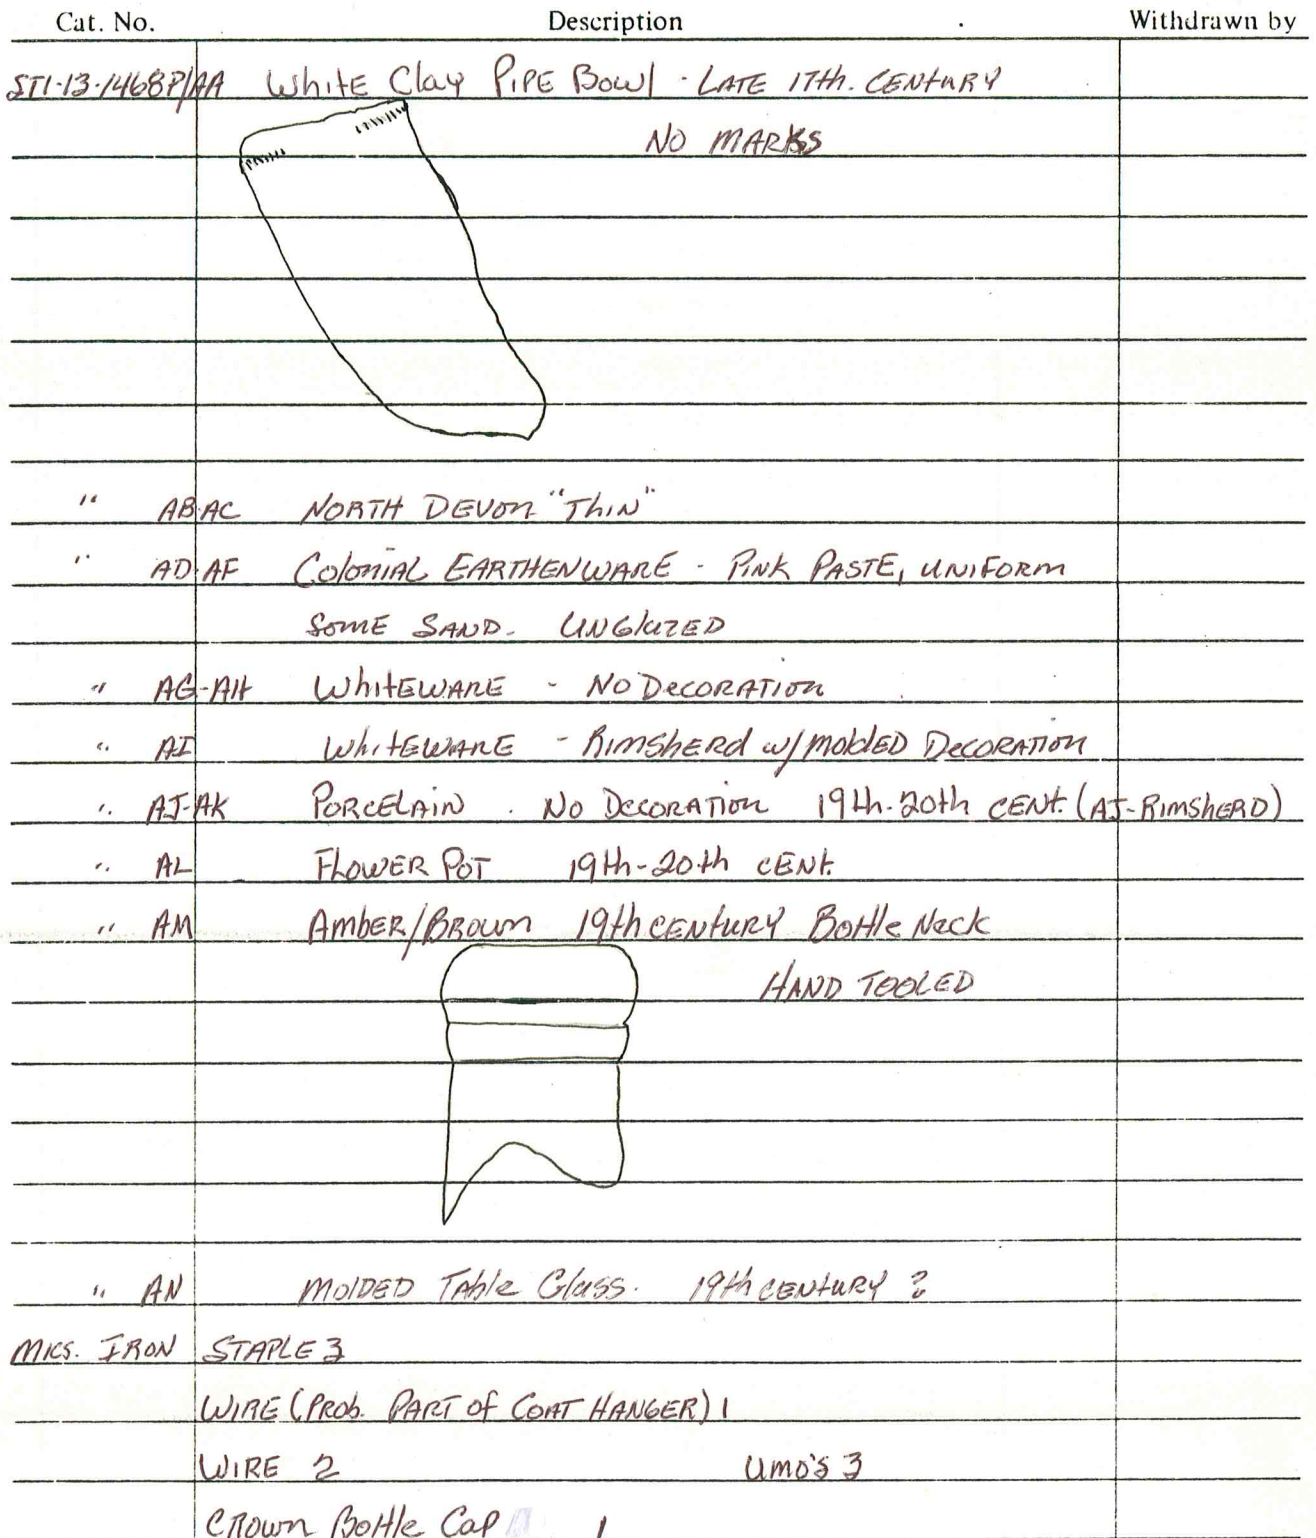 Cat. No. Description Withdrawn by
ST1-13-1468P/AA White Clay Pipe Bowl - LATE 17th. CENTURY
NO MARKS
" AB-AC NORTH DEVON "Thin"
" AD-AF Colonial EARTHENWARE - PINK PASTE, UNIFORM
SOME SAND. UNGlaZED
" AG-AH WhiteWARE - NO DecoRATION
" AI WhiteWARE - Rimsherd w/ molded DecoRATION
" AJ-AK PORCELAIN . NO DecoRATION 19th-20th CENT. (AJ-RimshERD)
" AL FLOWER POT 19th-20th CENT.
" AM Amber/Brown 19th CENTURY Bottle Neck
HAND TOOLED
" AN MOLDED Table Glass. 19th CENTURY ?
MICS. IRON STAPLE 3
WIRE (PROB. PART OF COAT HANGER) 1
WIRE 2 UMO'S 3
CROWN Bottle Cap 1